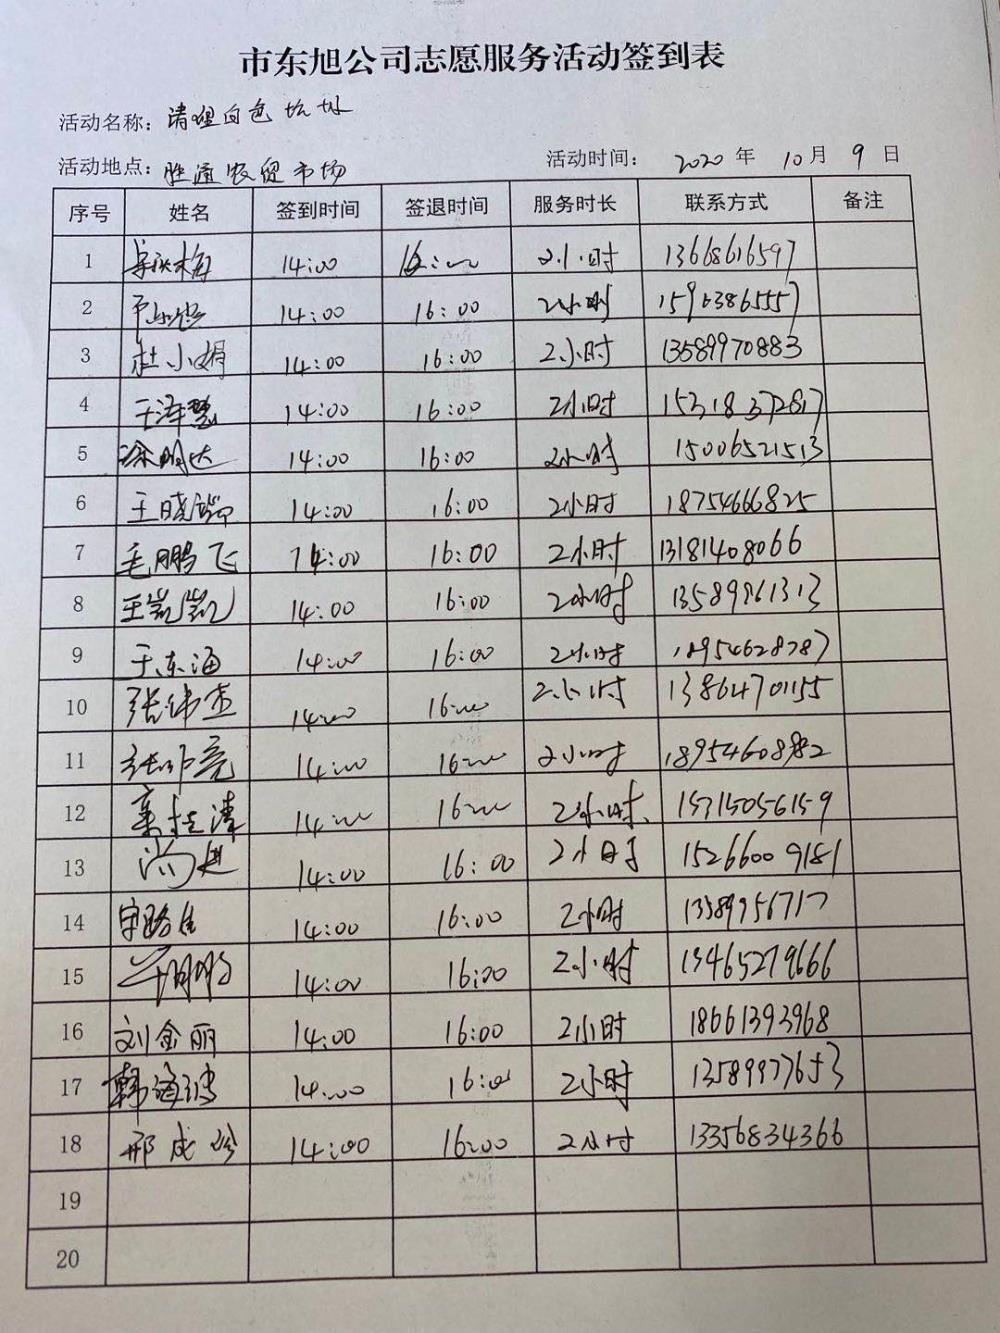 市东旭公司志愿服务活动签到表
活动名称：清理白色垃圾
活动地点：胜通农贸市场 活动时间： 2020 年 10 月 9 日
序号 姓名 签到时间 签退时间 服务时长 联系方式 备注
1 14:00 16:00 2小时 13668616597
2 14:00 16:00 2小时 15963865557
3 杜小娟 14:00 16:00 2小时 13589970883
4 王泽慧 14:00 16:00 2小时 15318372817
5 徐明达 14:00 16:00 2小时 15006521513
6 王晓端 14:00 16:00 2小时 18754666825
7 毛鹏飞 14:00 16:00 2小时 13181408066
8 王凯凯 14:00 16:00 2小时 13589961313
9 于东海 14:00 16:00 2小时 18954628787
10 张伟杰 14:00 16:00 2小时 13864701155
11 张帅亮 14:00 16:00 2小时 18954608982
12 14:00 16:00 2小时 15715056159
13 尚进 14:00 16:00 2小时 15266009181
14 14:00 16:00 2小时 13589956717
15 14:00 16:00 2小时 13465279666
16 刘金丽 14:00 16:00 2小时 18661393968
17 14:00 16:00 2小时 13589977653
18 邢成珍 14:00 16:00 2小时 13356834366
19
20